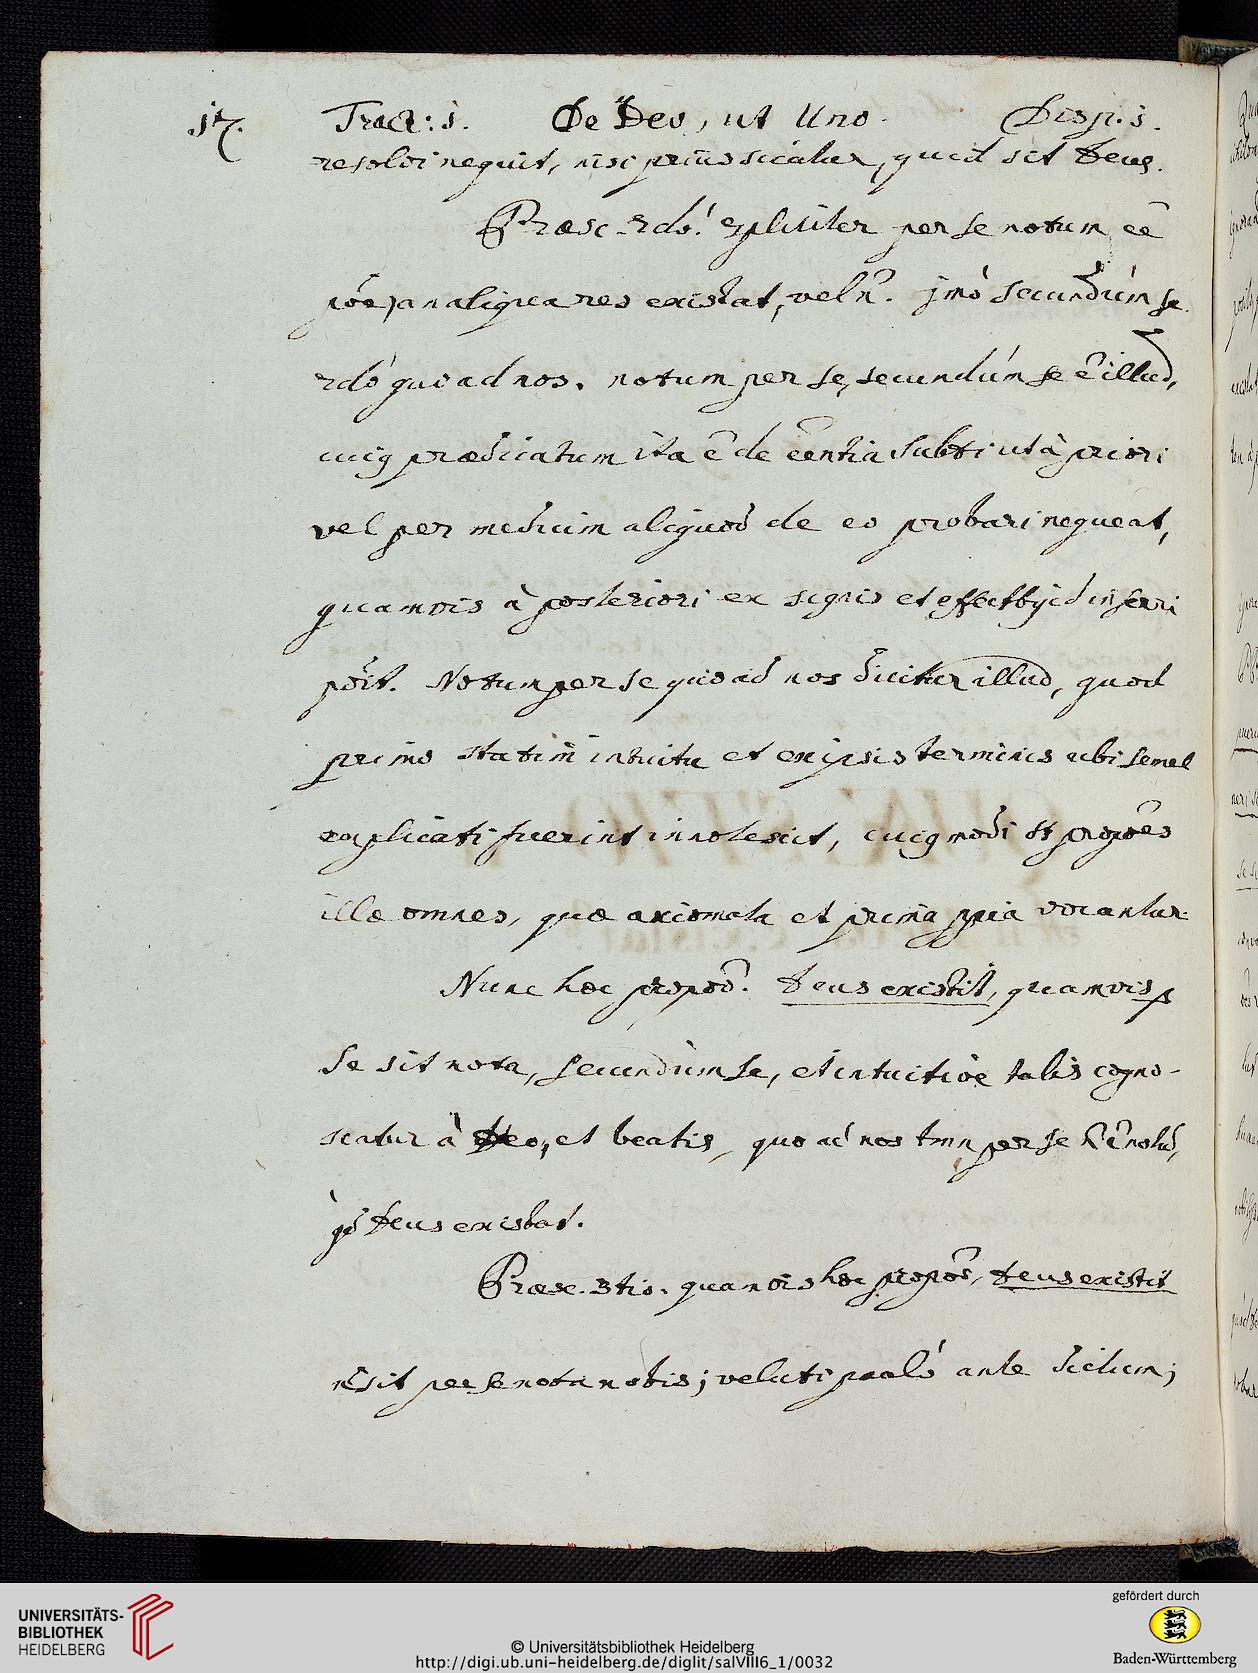 17. Tract: 1. De Deo, ut Uno. Disp. 1.
resolvi nequit, nisi prius dicatur, quid sit Deus.
Præsc. 2dò. expliciter per se notum eē
pōe, an aliqua res existat, vel n̄. jmò secundùm se
2dò quoad nos. notum per se, secundùm se ē illud,
cuiq prædicatum ita ē de eēntia subti ut à priori
vel per medium aliquod de eo probari nequeat,
quamvis à posteriori ex signis et effectbq id inferri
pōit. Notum per se quoad nos dicitur illud, quod
primo statim intuitu et ex ipsis terminis ubi semel
explicati fuerint innotescit, cuiq modi st propōes
illæ omnes, quæ axiomata et prima ppia vocantur.
Nunc hæc propoō. Deus existit, quamvis p
se sit nota, secundùm se, et intuitivè talis cogno-
scatur à Deo, et beatis, quoad nos tmn per se n̄ ē notū,
qd Deus existat.
Præsc. 3tio. quamvis hæc propōo, Deus existit
n̄ sit per se nota nobis; veluti paulò ante dictum;
UNIVERSITÄTS-
BIBLIOTHEK
HEIDELBERG
© Universitätsbibliothek Heidelberg
http://digi.ub.uni-heidelberg.de/diglit/salVIII6_1/0032
gefördert durch
Baden-Württemberg